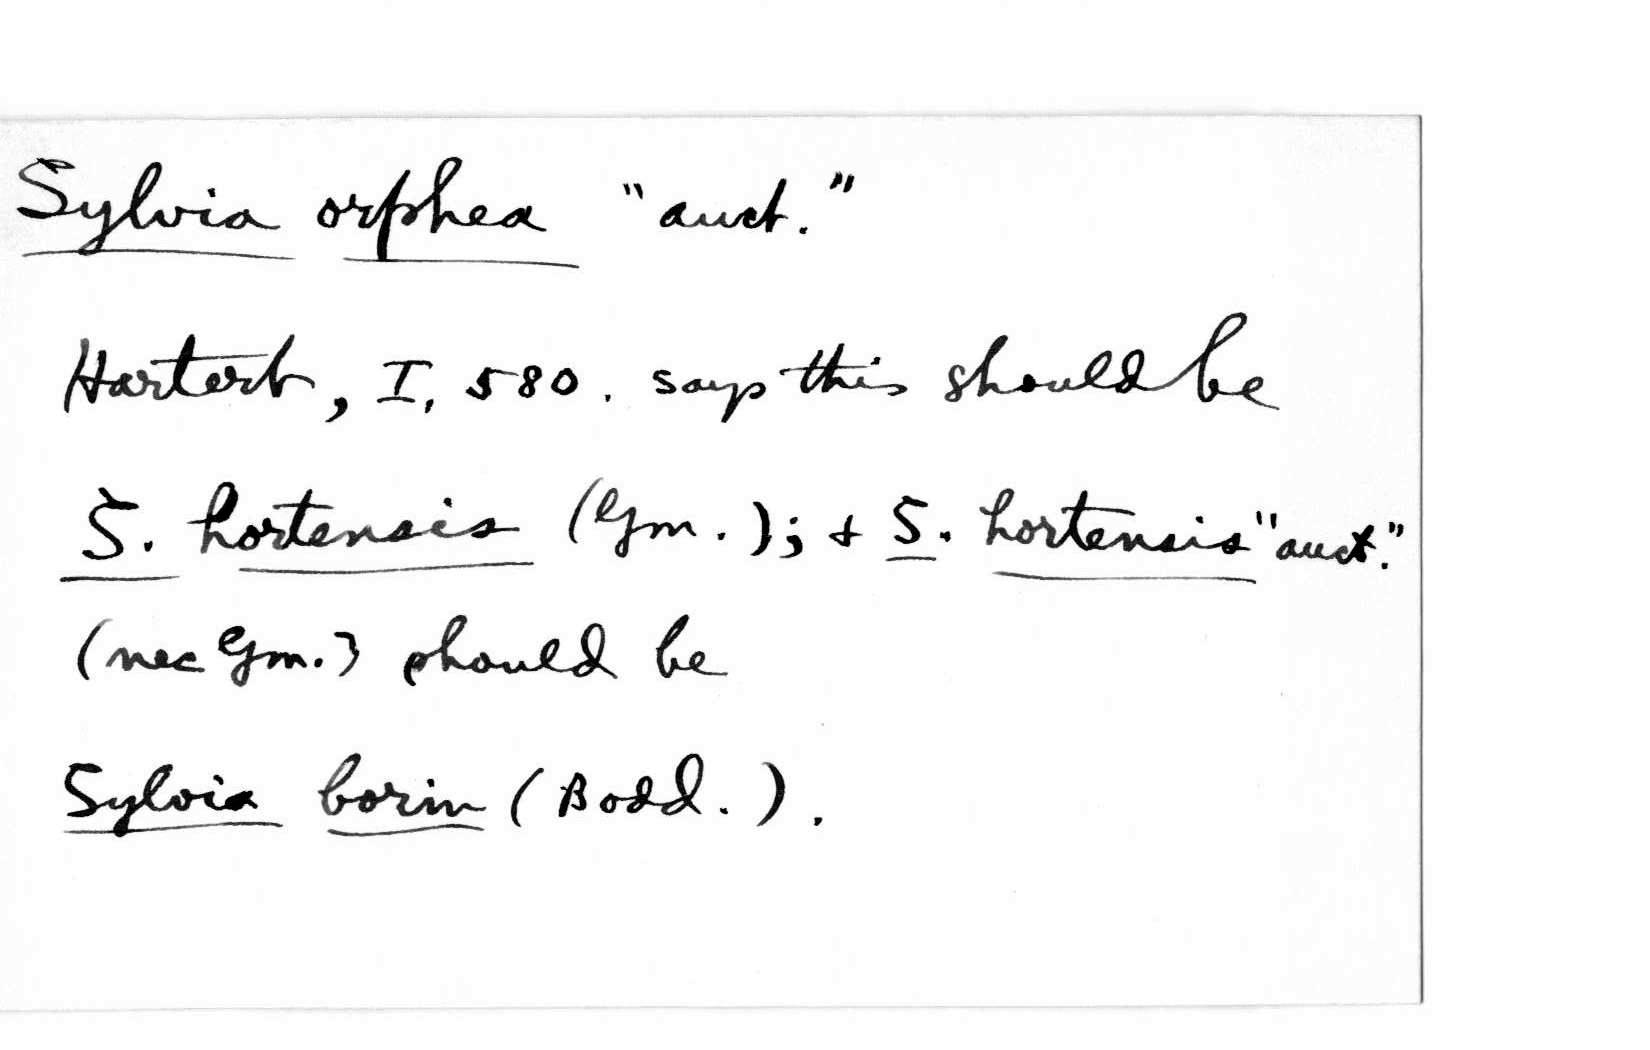 Sylvia orphea "auct."
Hartert, I, 580. says this should be
S. hortensis (Gm.); + S. hortensis "auct."
(nec Gm.) should be
Sylvia borin (Bodd.).